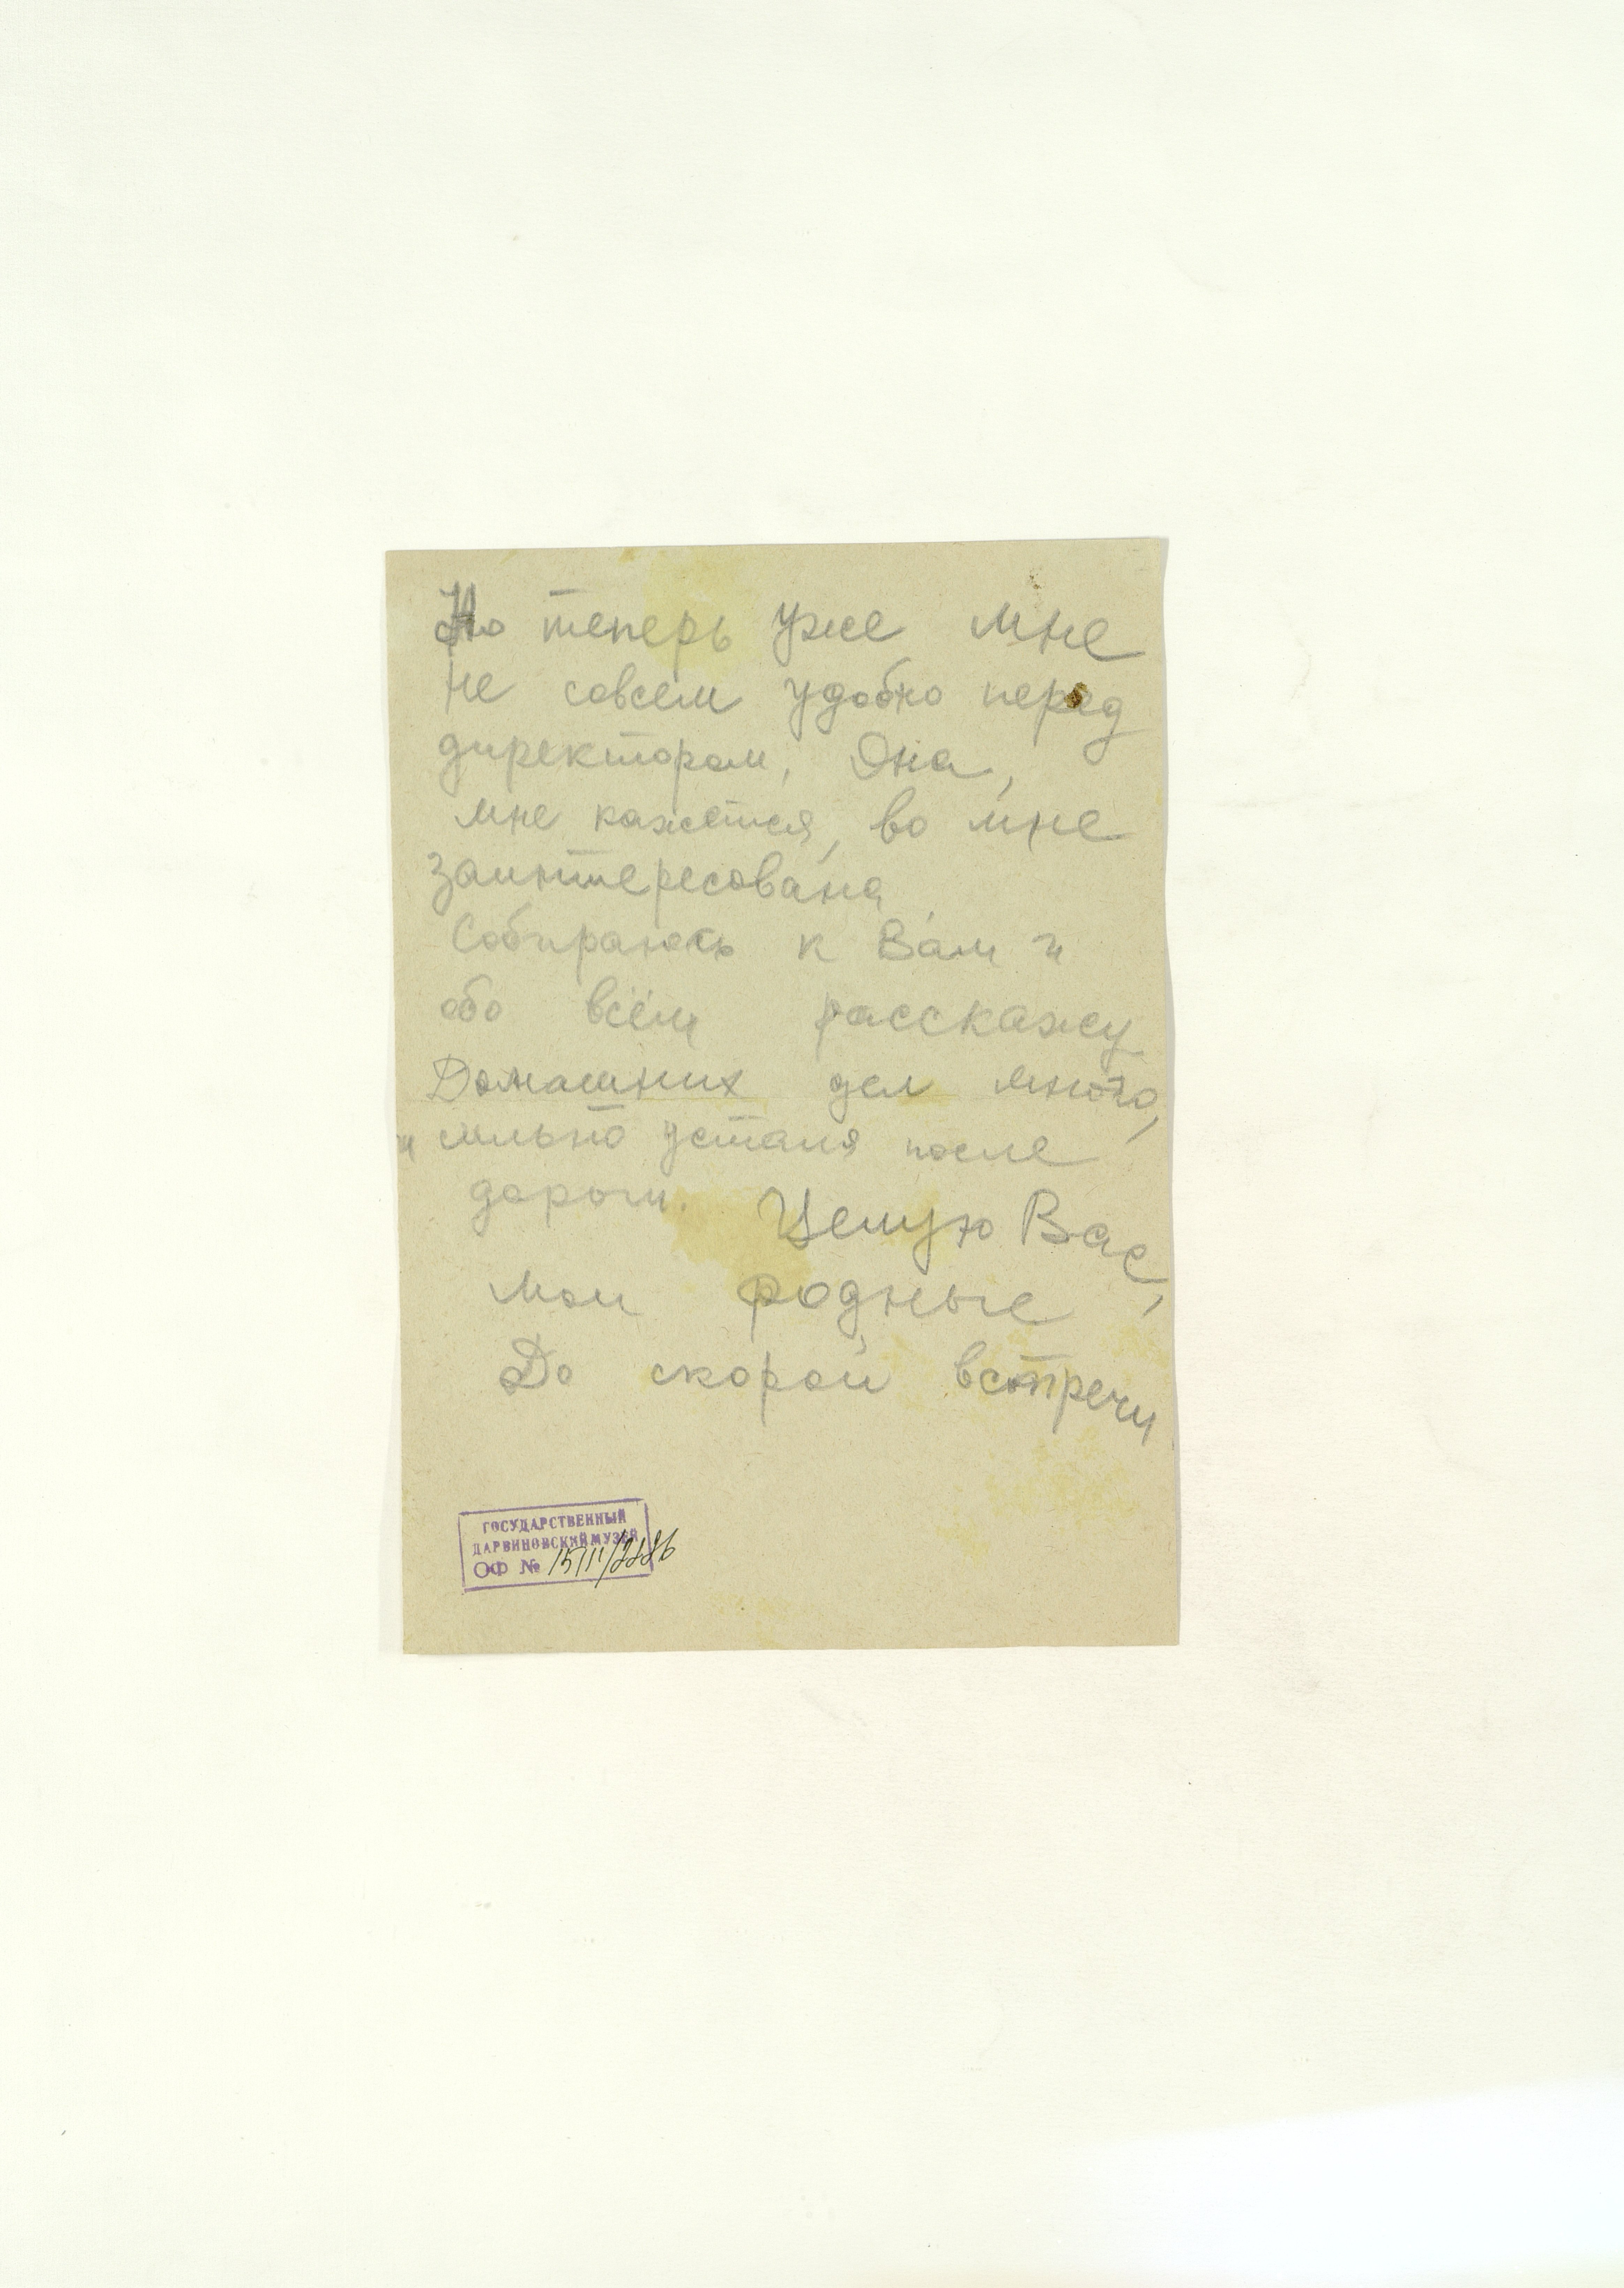 Но теперь уже мне
не совсем удобно перед
директором, Она,
мне кажется, во мне
заинтересована
Собираюсь к Вам и
обо всём расскажу
Домашних дел много,
и сильно устала после
дороги. Целую Вас,
мои родные
До скорой встречи
ГОСУДАРСТВЕННЫЙ
ДАРВИНОВСКИЙ МУЗЕЙ
ОФ №